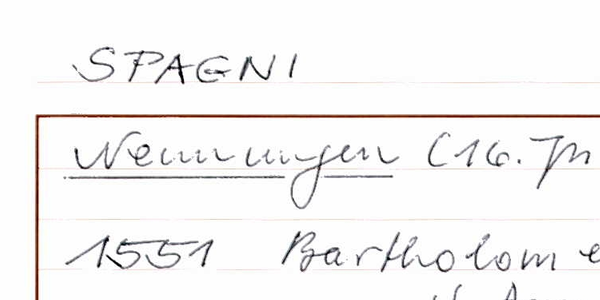 SPAGNI
Nennungen (16. Jh
1551 Bartholome